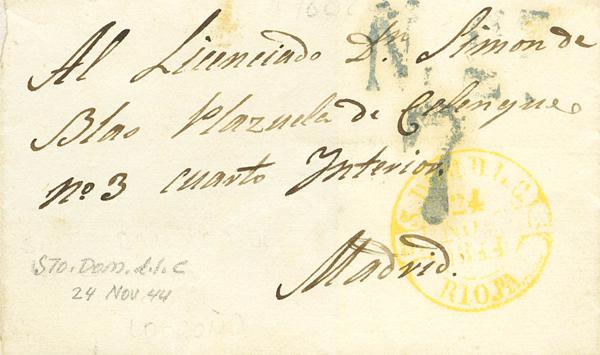 Al Licenciado Dn. Simon de
Blas Plazuela de Celenque
nº 3 cuarto Interior.
Madrid.
7
24
NOV
1844
RIOJA
STO. DOM. d. l. C
24 NOV 44